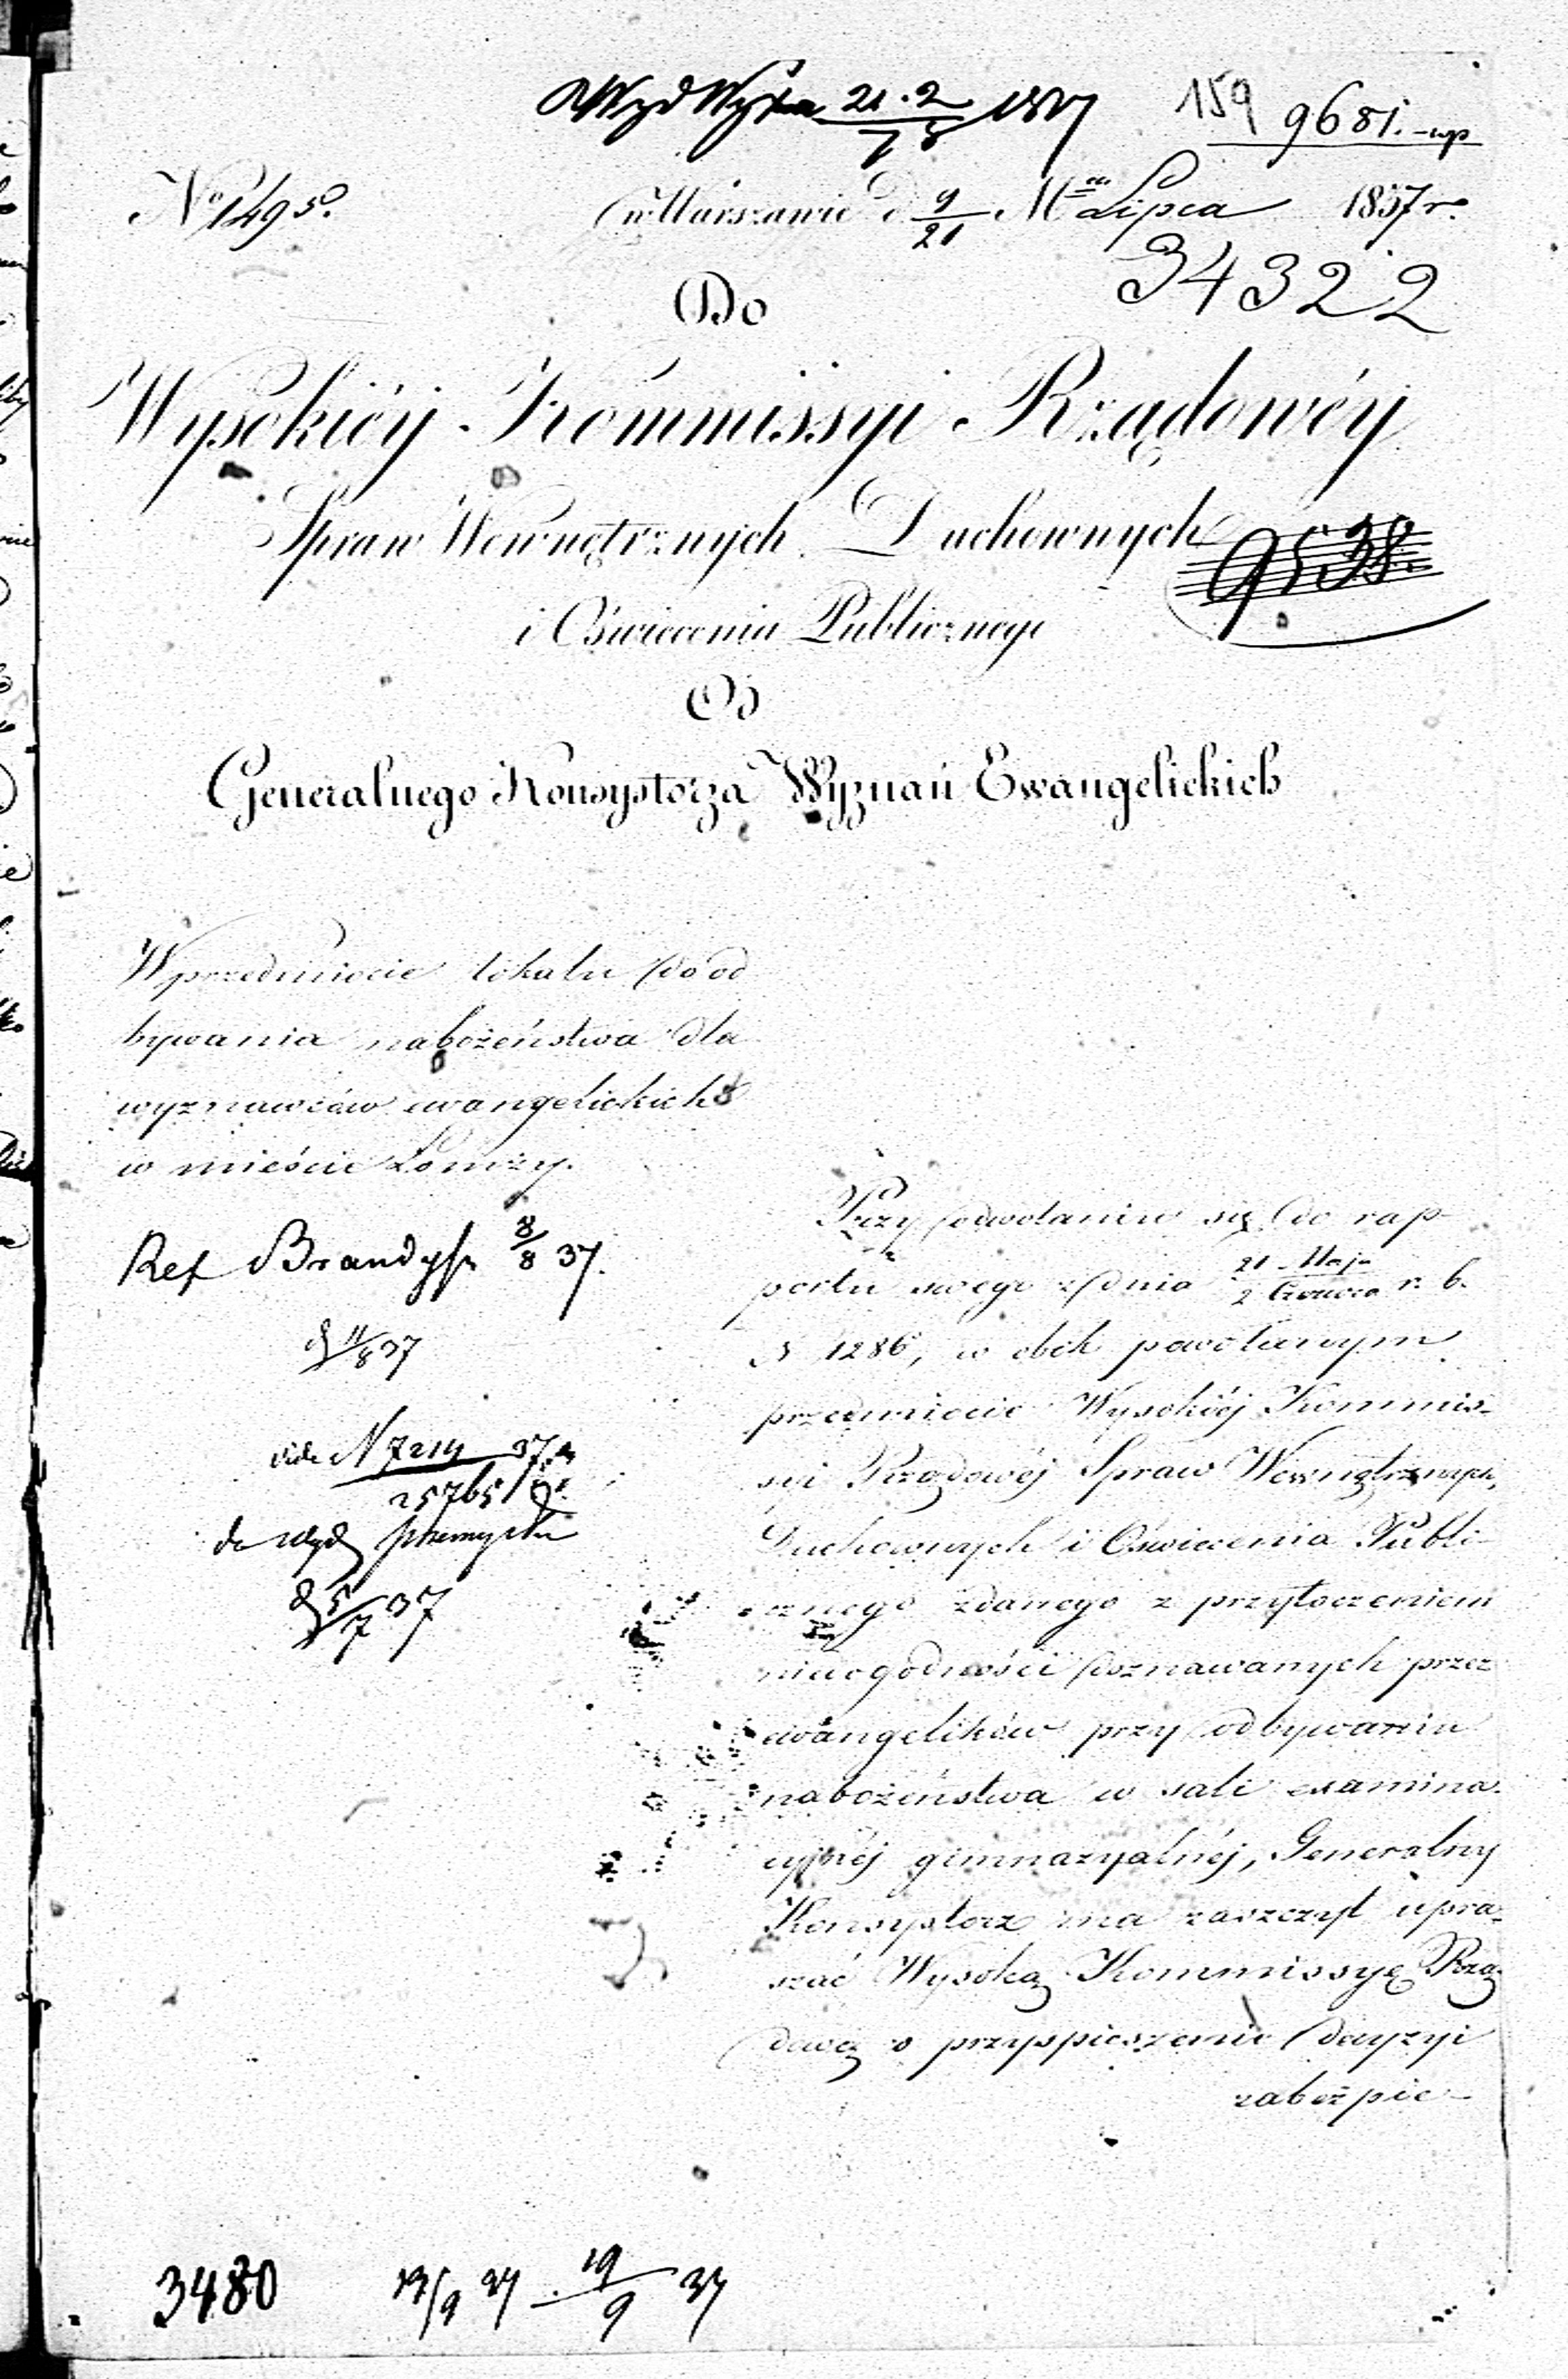 Wyd Wyzn 21.2/7 8 1837 159 9681.-wp
No 1495. w Warszawie d 9/21 Mca Lipca 1837 r.
34322
Do
Wysokiéy Kommissyi Rządowéy
Spraw Wewnętrznych Duchownych
9538.
i Oświecenia Publicznego
Od
Generalnego Konsystorza Wyznań Ewangelickich
W przedmiocie lokalu do od
bywania nabożeństwa dla
wyznawców ewangelickich
w mieście Łomży.
Ref Brandysz 8/8 37.
11/8 37
vide N 7214 37
25765
do Wydz przemysłu
5/7 37
Przy odwołaniu się do rap-
portu swego z dnia 21 Maja/2 Czerwca r. b.
N 1286, w obok powołanym
przedmiocie Wysokiéj Kommis-
syi Rządowéj Spraw Wewnętrznych,
Duchownych i Oświecenia Publi-
cznego zdanego z przytoczeniem
niewygodności doznawanych przez
ewangelików przy odbywaniu
nabożeństwa w sali examina-
cyjnéj gimnazyalnéj, Generalny
Konsystorz ma zaszczyt upra-
szać Wysoką Kommissyę Rzą-
dową o przyspieszenie decyzyi
zabezpie-
3480 13/9 37 . 19/9 37